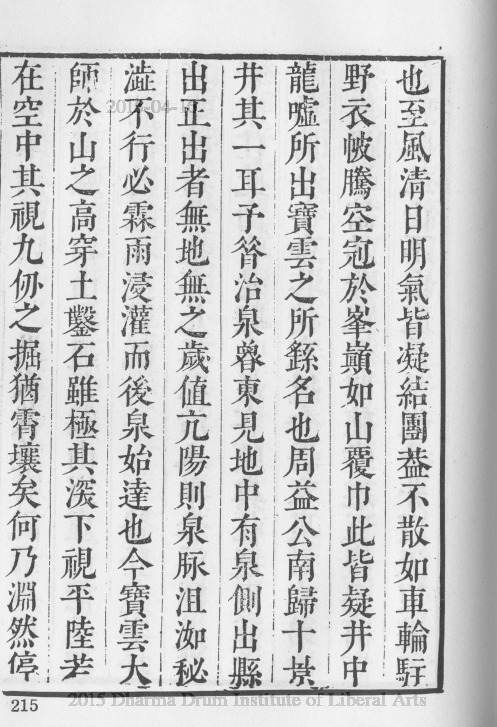 也至風清日明氣皆凝結團葢不散如車輪駐
野衣帔騰空冠於峯巔如山覆巾此皆疑井中
龍噓所出寶雲之所繇名也周益公南歸十景
井其一耳予昝治泉粤東見地中有泉側出縣
出正出者無地無之歲值亢陽則泉脉沮洳秘
澁不行必霖雨浸灌而後泉始達也今寶雲大
師於山之高穿土鑿石雖極其深下視平陸若
在空中其視九仞之掘猶霄壤矣何乃淵然停
215
2015 Dharma Drum Institute of Liberal Arts